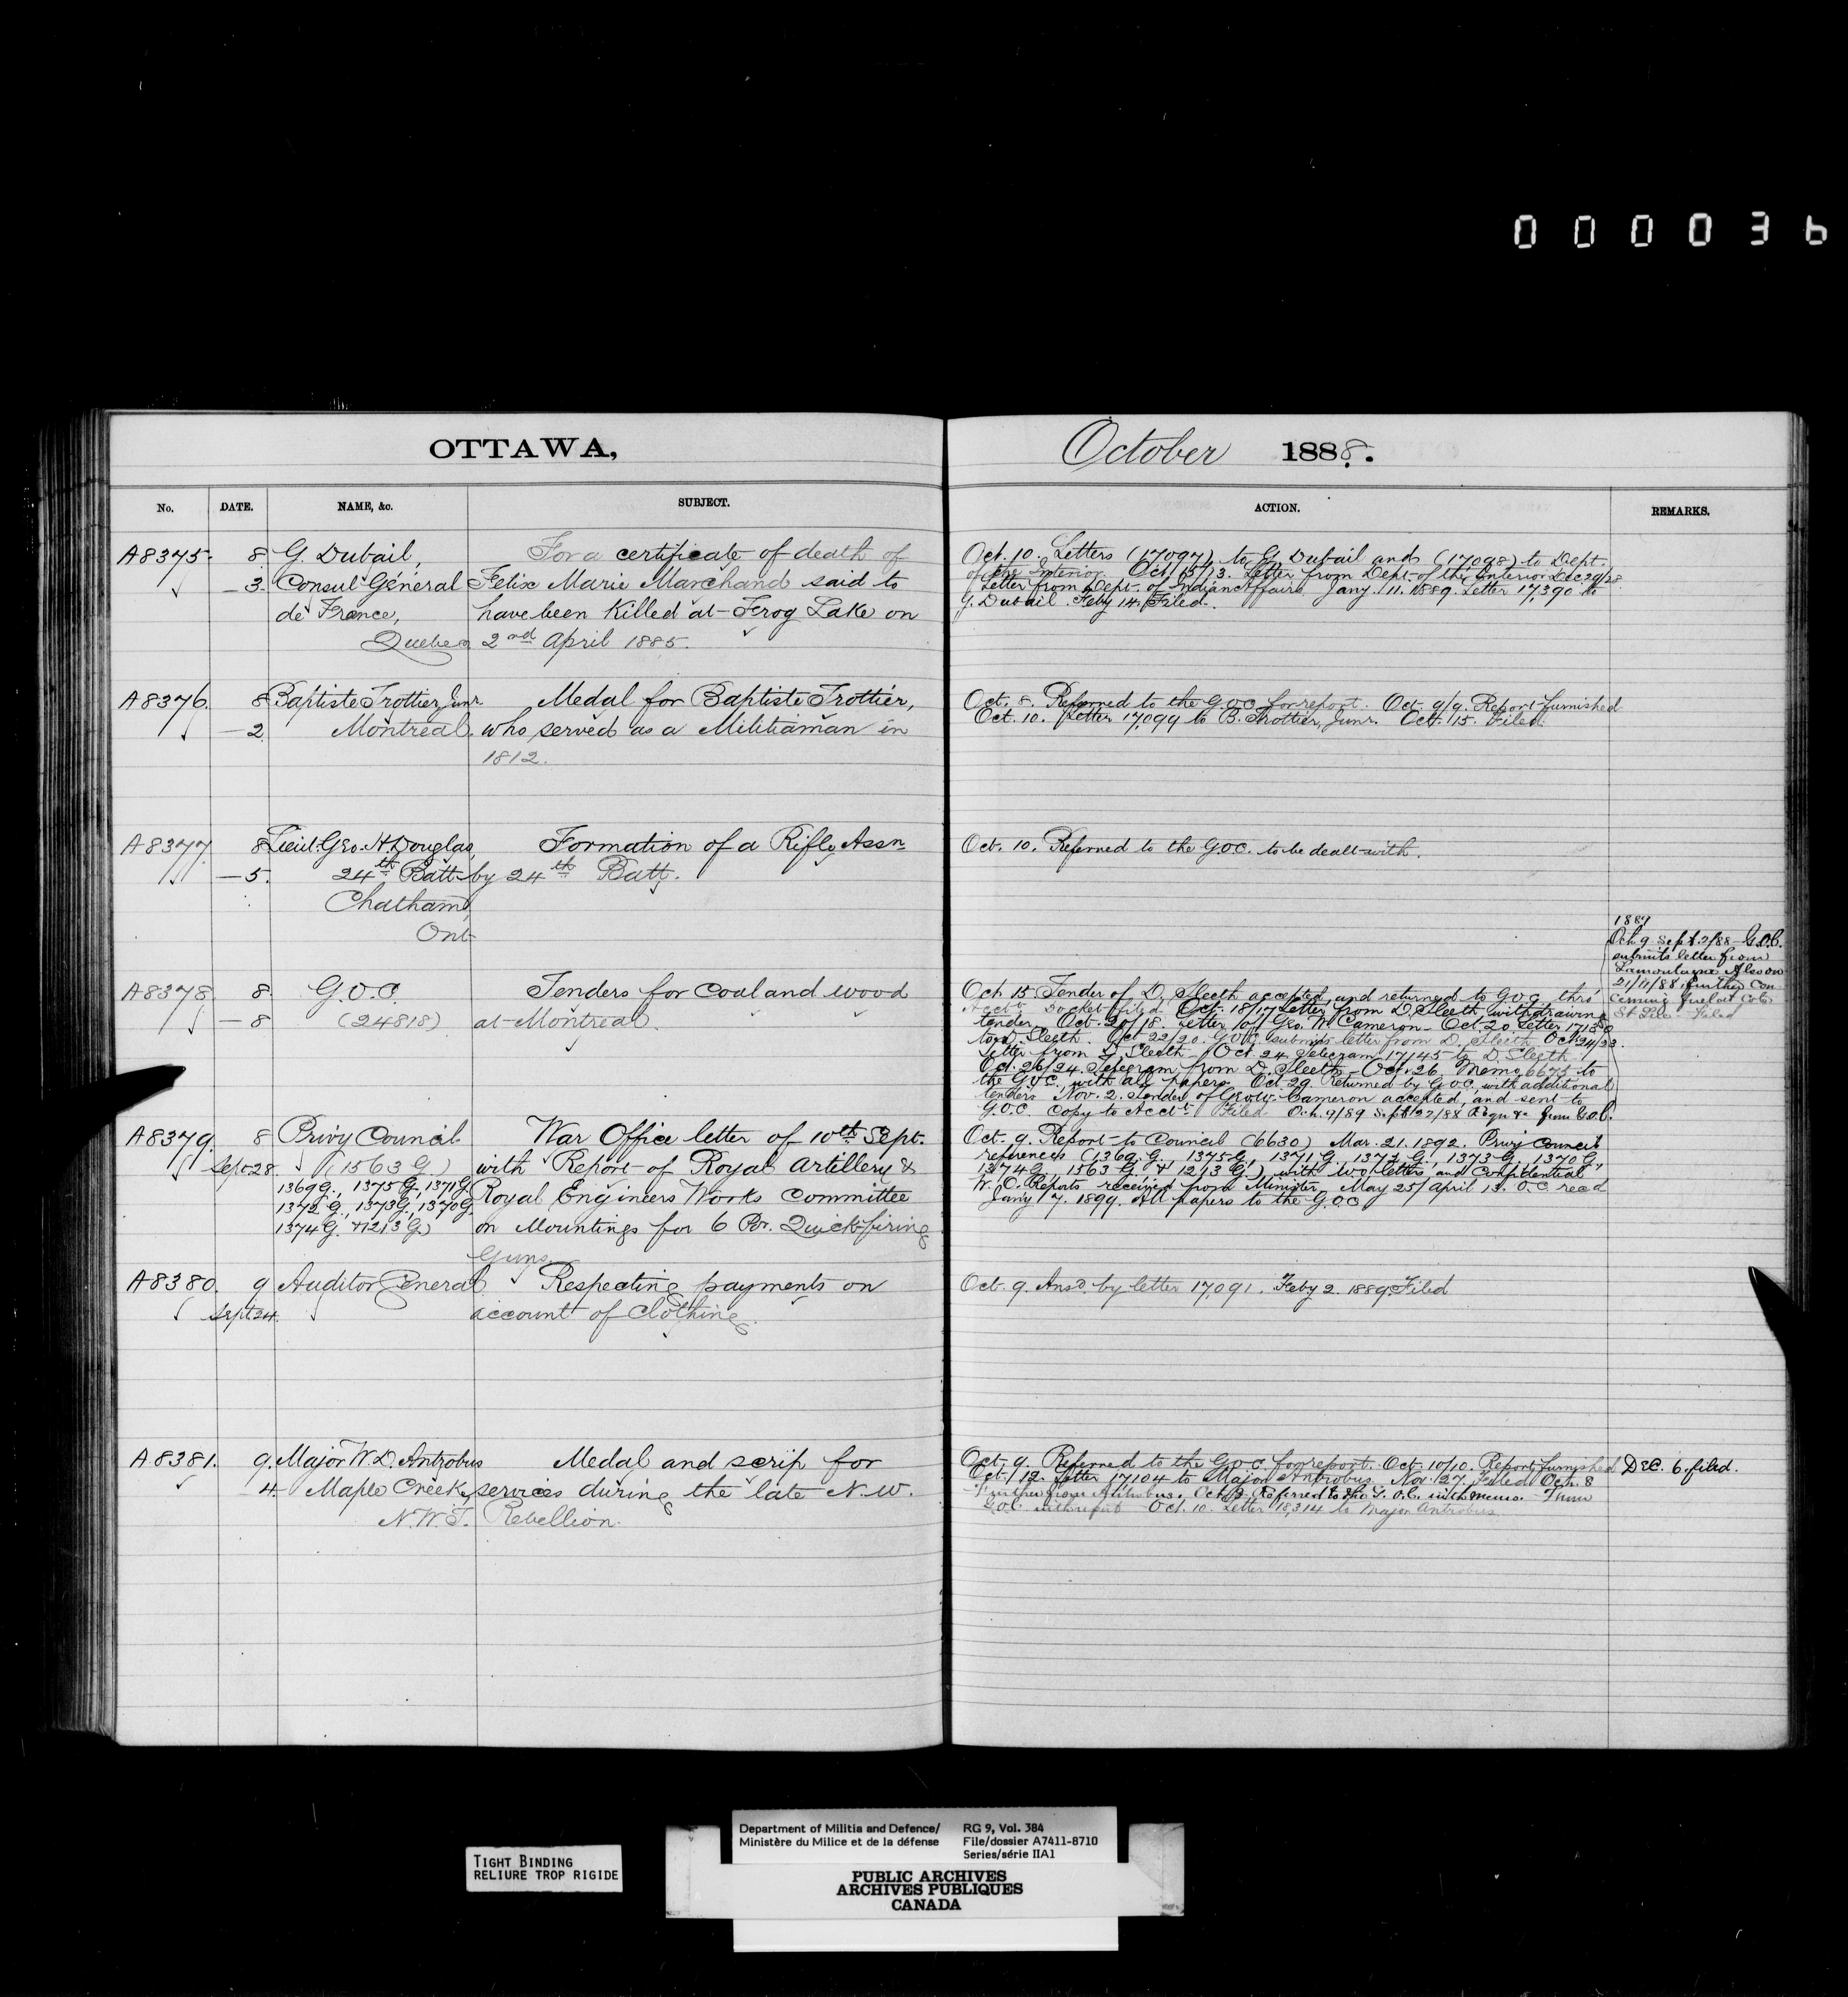 000036
OTTAWA,
October 1888.
No.
DATE.
NAME, &c.
SUBJECT.
ACTION.
REMARKS.
A8375.
8
G. Dubail,
For a certificate of death of
— 3.
Consul Général
Felix Marie Marchand said to
de France,
have been killed at Frog Lake on
Quebec
2nd April 1885.
Oct. 10. Letters (17097) to G. Dubail and (17098) to Dept.
of the Interior Oct 15/13. Letter from Dept. of the Interior Dec 29/28.
Letter from Dept. of Indian Affairs Jany. 11. 1889. Letter 17,390 to
G. Dubail. Feby 14. Filed.
A8376.
8
Baptiste Trottier, Junr.
Medal for Baptiste Trottier,
— 2.
Montreal.
who served as a Militiaman in
1812.
Oct. 8. Referred to the G.O.C. for report. Oct. 9/9. Report furnished
Oct. 10. Letter 17,099 to B. Trottier, Junr. Oct. 15. Filed.
A8377.
8
Lieut. Geo. H. Douglas,
Formation of a Rifle Assn
— 5.
24th Batt
by 24th Batt.
Chatham,
Ont
Oct. 10. Referred to the G.O.C. to be dealt with.
A8378
8.
G.O.C.
Tenders for Coal and wood
— 8
(24818)
at Montreal.
Oct 15. Tender of D. Sleeth accepted, and returned to G.O.C., thro'
Acct. Docket filed Oct. 18/17 Letter from D. Sleeth withdrawing
tender. Oct. 20/18. Letter of Geo. W. Cameron — Oct. 20. Letter 17130
to D. Sleeth. Oct 22/20. G.O.C. submits letter from D. Sleeth Oct 24/23.
Letter from D. Sleeth. Oct. 24. Telegram 17145 to D. Sleeth.
Oct. 26/24. Telegram from D. Sleeth — Oct. 26. Memo 6675 to
the G.O.C., with all papers. Oct. 29. Returned by G.O.C. with additional
tenders. Nov. 2. Tender of Geo. W. Cameron accepted, and sent to
G.O.C. Copy to Acct. Filed Oct. 9/89 Sept 27/88 from G.O.C.
Oct 9 Sept G.O.C.
submits letter from
Lamontagne Also on
21/11/88 further con
cerning fuel at
Filed
A8379.
8
Privy Council
War Office letter of 10th Sept.
Sept 28.
(1563 G.)
with Report of Royal Artillery &
1369 G., 1375 G., 1371 G.
Royal Engineers Works Committee
1372 G., 1373 G., 1370 G.
on Mountings for 6 Pr. Quick firing
1374 G. & 1213 G.)
Guns.
Oct. 9. Report to Council (6630) Mar. 21. 1892. Privy Council
references (1369 G. 1375 G., 1371 G. 1372 G., 1373 G., 1370 G.,
1374 G., 1563 G. & 1213 G.), with two letters and Confidential
W.O. Reports received from Minister. May 25/April 13. O.C. read
Jany 7. 1899. All papers to the G.O.C
A8380.
9
Auditor General
Respecting payments on
Sept 24.
account of clothing.
Oct. 9. Ansd. by letter 17,091. Feby 2. 1889. Filed
A8381.
9.
Major W. D. Antrobus
Medal and scrip for
4.
Maple Creek,
services during the late N.W.
N.W.T.
Rebellion.
Oct. 9. Referred to the G.O.C. for report. Oct. 10/10. Report furnished
Oct. 12. Letter 17104 to Major Antrobus. Nov. 27. Filed Oct. 8
Further from Antrobus. Referred to the G.O.C. with memo. From
G.O.C. with report Oct. 10. Letter 18,314 to Major Antrobus
DEC. 6. filed.
TIGHT BINDING
RELIURE TROP RIGIDE
Department of Militia and Defence/
Ministère du Milice et de la défense
RG 9, Vol. 384
File/dossier A7411-8710
Series/série IIA1
PUBLIC ARCHIVES
ARCHIVES PUBLIQUES
CANADA